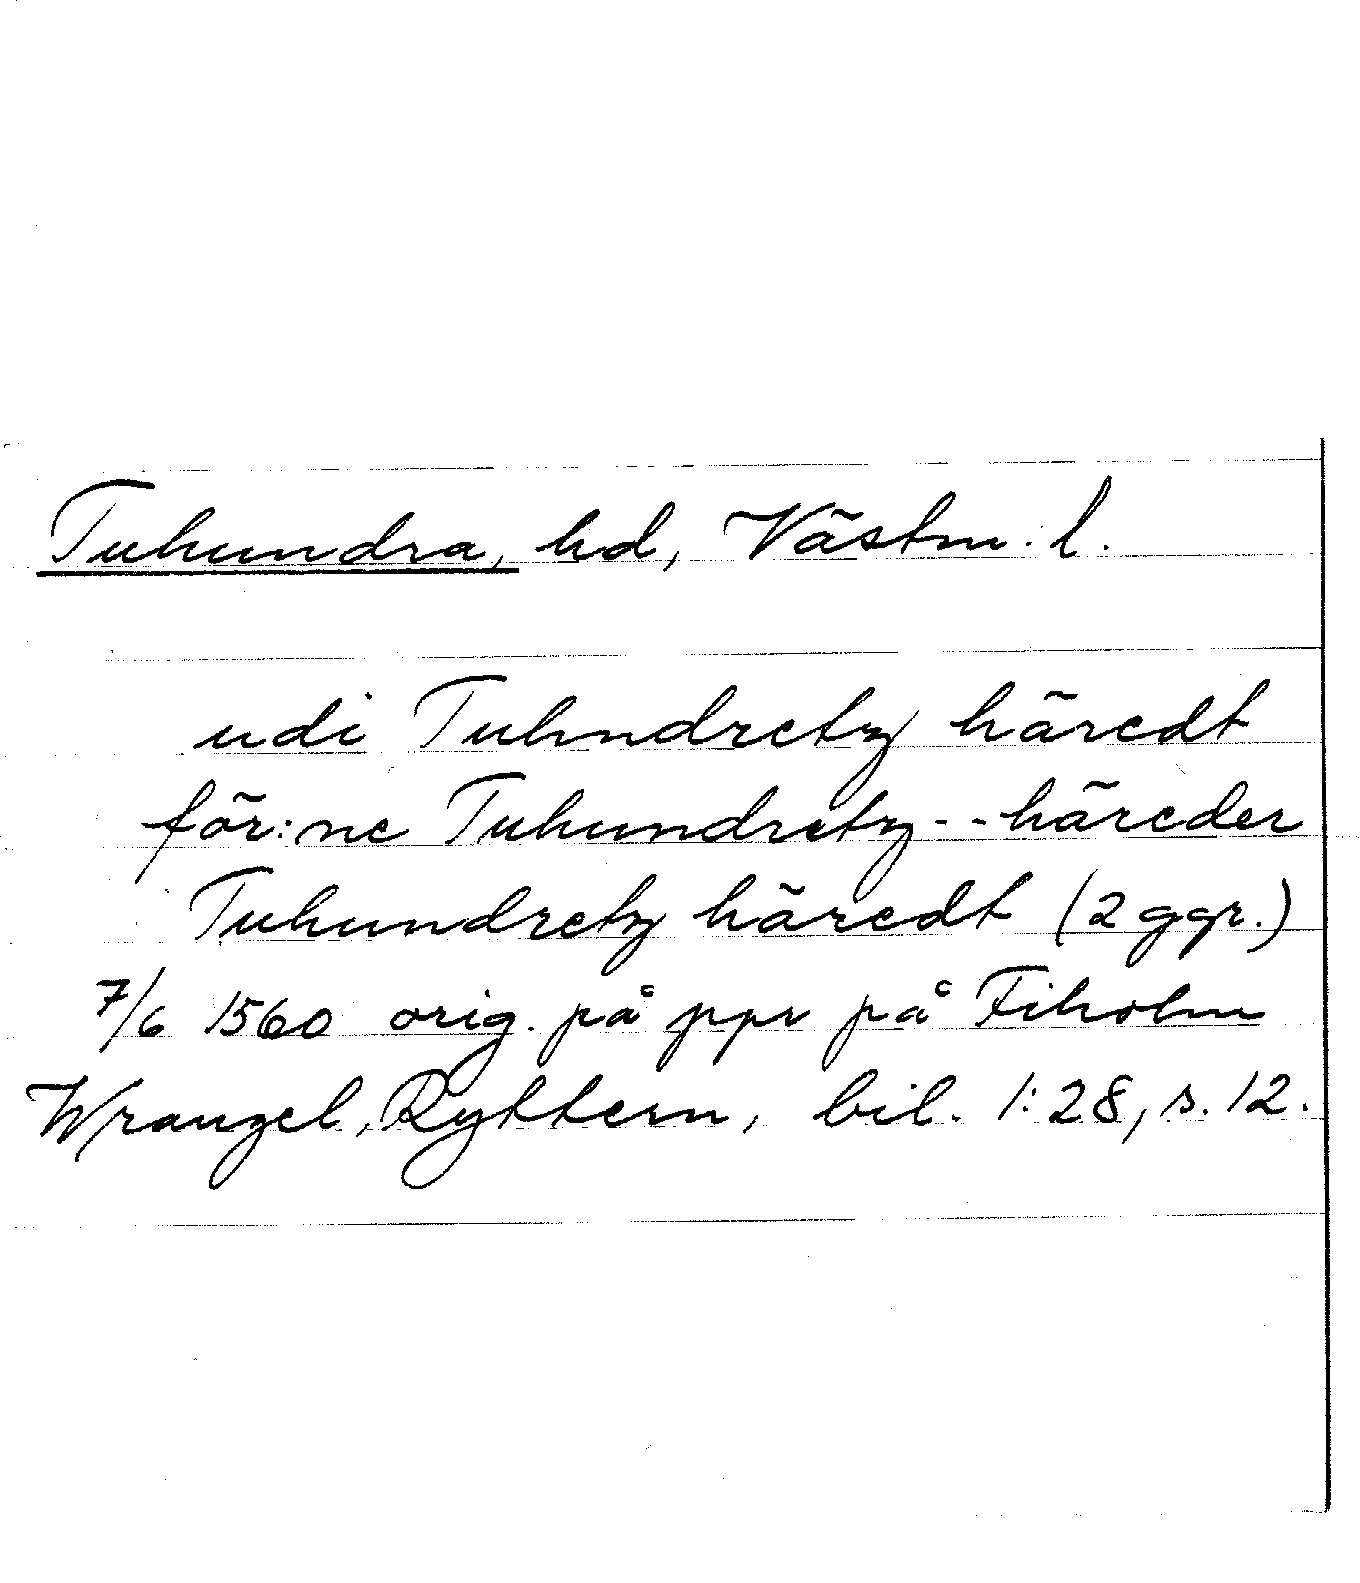 Tuhundra, hd, Västm. l.
udi Tuhndretz häredt
för:ne Tuhundretz -- häreder
Tuhundretz häredt (2 ggr.)
7/6 1560 orig. på ppr på Fiholm
Wrangel, Ryttern, bil. 1:28, s. 12.